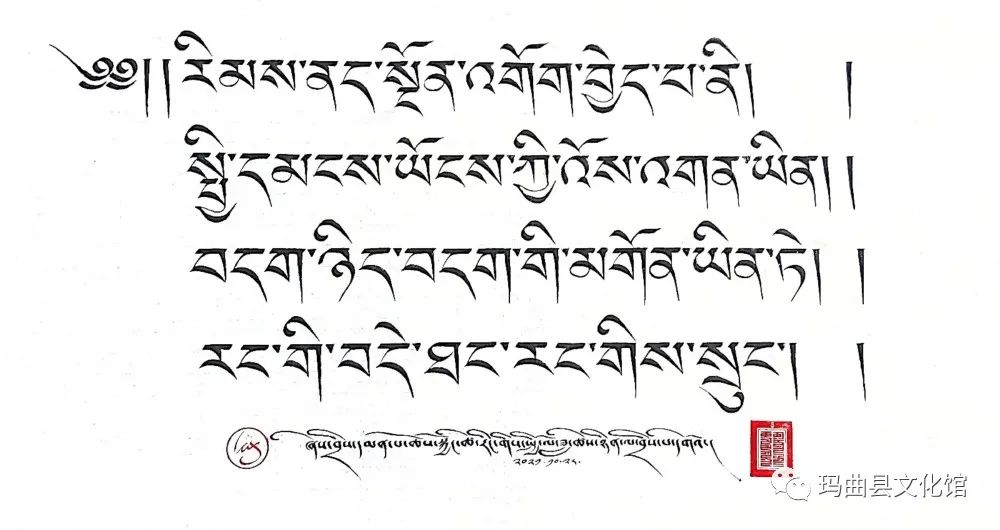 ༄༅། །རིམས་ནད་སྔོན་འགོག་བྱེད་པ་ནི། །
སྤྱི་དམངས་ཡོངས་ཀྱི་འོས་འགན་ཡིན། །
བདག་ཉིད་བདག་གི་མགོན་ཡིན་ཏེ། །
རང་གི་བདེ་ཐང་རང་གིས་སྲུང་། །
2021.10.25.
玛曲县文化馆